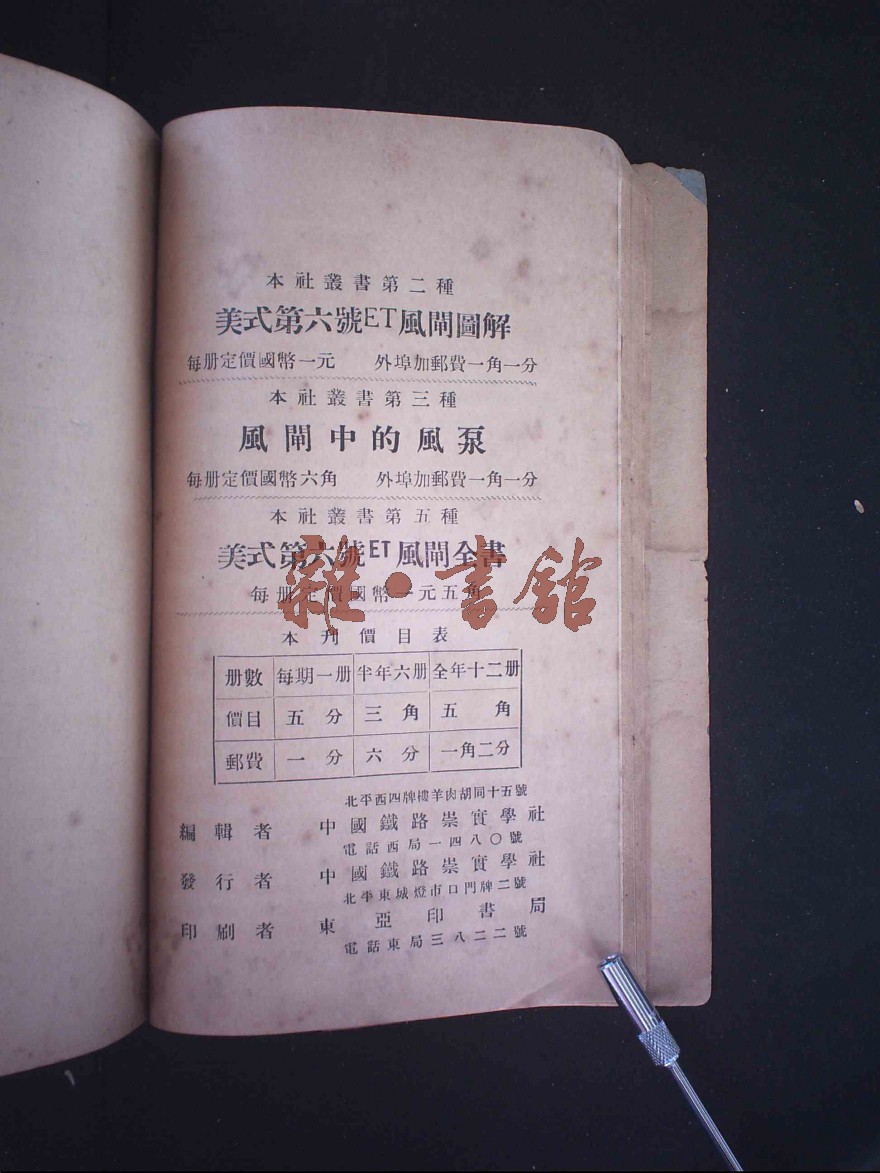 本社叢書第二種
美式第六號ET風閘圖解
每册定價國幣一元 外埠加郵費一角一分
本社叢書第三種
風閘中的風泵
每册定價國幣六角 外埠加郵費一角一分
本社叢書第五種
美式第六號ET風閘全書
每册定價國幣一元五角
雜·書館
本刋價目表
册數 每期一册 半年六册 全年十二册
價目 五分 三角 五角
郵費 一分 六分 一角二分
北平西四牌樓羊肉胡同十五號
編輯者 中國鐵路崇實學社
電話西局一四八〇號
發行者 中國鐵路崇實學社
北平東城燈市口門牌二號
印刷者 東亞印書局
電話東局三八二二號